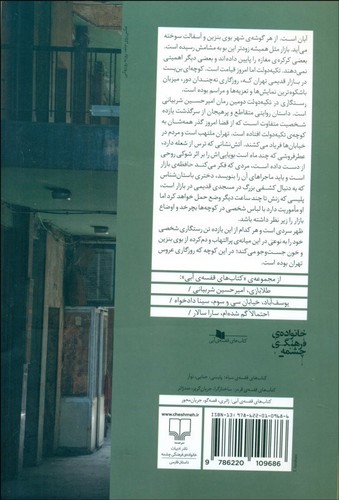 آبان است. از هر گوشه‌ی شهر بوی بنزین و آسفالت سوخته
می‌آید. بازار مثل همیشه زودتر این بو به مشامش رسیده است.
بعضی کرکره‌ی مغازه را پایین داده‌اند و بعضی دیگر اهمیتی
نمی‌دهند. تکیه‌دولت اما امروز قیامت است. کوچه‌ای بن‌بست
در بازار قدیمی تهران که، روزگاری نه‌چندان دور، میزبان
باشکوه‌ترین نمایش‌ها و تعزیه‌ها و مراسم بوده است.
رستگاری در تکیه‌دولت دومین رمان امیرحسین شربیانی
است. داستان روایتی متقاطع و پرهیجان از سرگذشت یازده
شخصیت متفاوت است که از قضا امروز گذر همه‌شان به
کوچه‌ی تکیه‌دولت افتاده است. تهران ملتهب است و مردم در
خیابان‌ها فریاد می‌کشند. آتش‌نشانی که ترس از شعله دارد،
عطرفروشی که چند ماه است بویایی‌اش را بر اثر شوکی روحی
از دست داده است، مردی که فکر می‌کند حافظه‌ی بازار
است و باید ماجراهای آن را بنویسد، دختری باستان‌شناس
که به دنبال کشفی بزرگ در مسجدی قدیمی در بازار است،
پلیسی که زنش تا چند ساعت دیگر وضع حمل خواهد کرد اما
او مأموریت دارد با لباس شخصی در کوچه‌ها بچرخد و اوضاع
بازار را زیر نظر داشته باشد.
ظهر سردی است و هر کدام از این یازده تن رستگاری شخصی
خود را به نوعی در این میانه‌ی پرالتهاب و دم‌کرده از بوی بنزین
و خون جست‌وجو می‌کند؛ در این کوچه که روزگاری عروس
تهران بوده است.
از مجموعه‌ی «کتاب‌های قفسه‌ی آبی»:
طلابازی، امیرحسین شربیانی /
یوسف‌آباد، خیابان سی و سوم، سینا دادخواه /
احتمالاً گم شده‌ام، سارا سالار /
خانواده‌ی
فرهنگی
چشمه
کتاب‌های قفسه‌ی آبی
کتاب‌های قفسه‌ی آبی: ژانری، قصه‌گو، جریان‌محور
ISBN-13: 978-622-01-0968-6
9 786220 109686
www.cheshmeh.ir